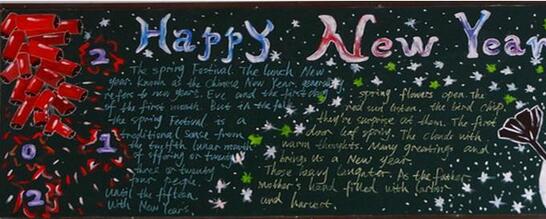 Happy New Year
2
0
1
2
The spring Festival. The lunch New
year. known as the Chinese New Year, generally
refers to new year. the first day
of the first month. But in the folk
the spring Festival is a
traditional sense from
the twelfth lunar month
of offering or twenty
three or twenty
four begin,
until the fifteen
with New Years.
spring flowers open. The
red sun listen. the bird chip.
they're surprise at them. The first
door leaf spring. The clouds with
warm thoughts. Many greetings and
brings us a New year.
Those heavy laughter. As the father
mother's hand filled with labor
and harvest.